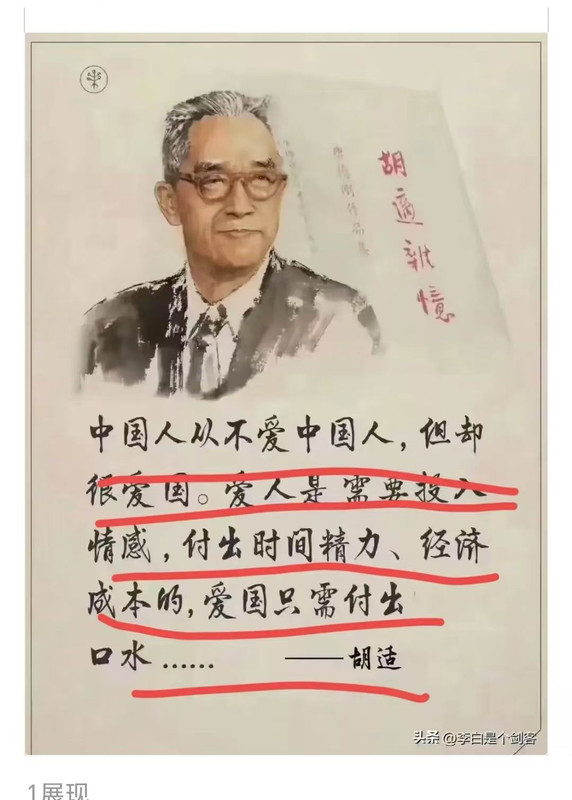 胡適雜憶
唐德剛作品集
中国人从不爱中国人，但却
很爱国。爱人是需要投入
情感，付出时间精力、经济
成本的，爱国只需付出
口水……　　——胡适
头条 @李白是个剑客
1展现